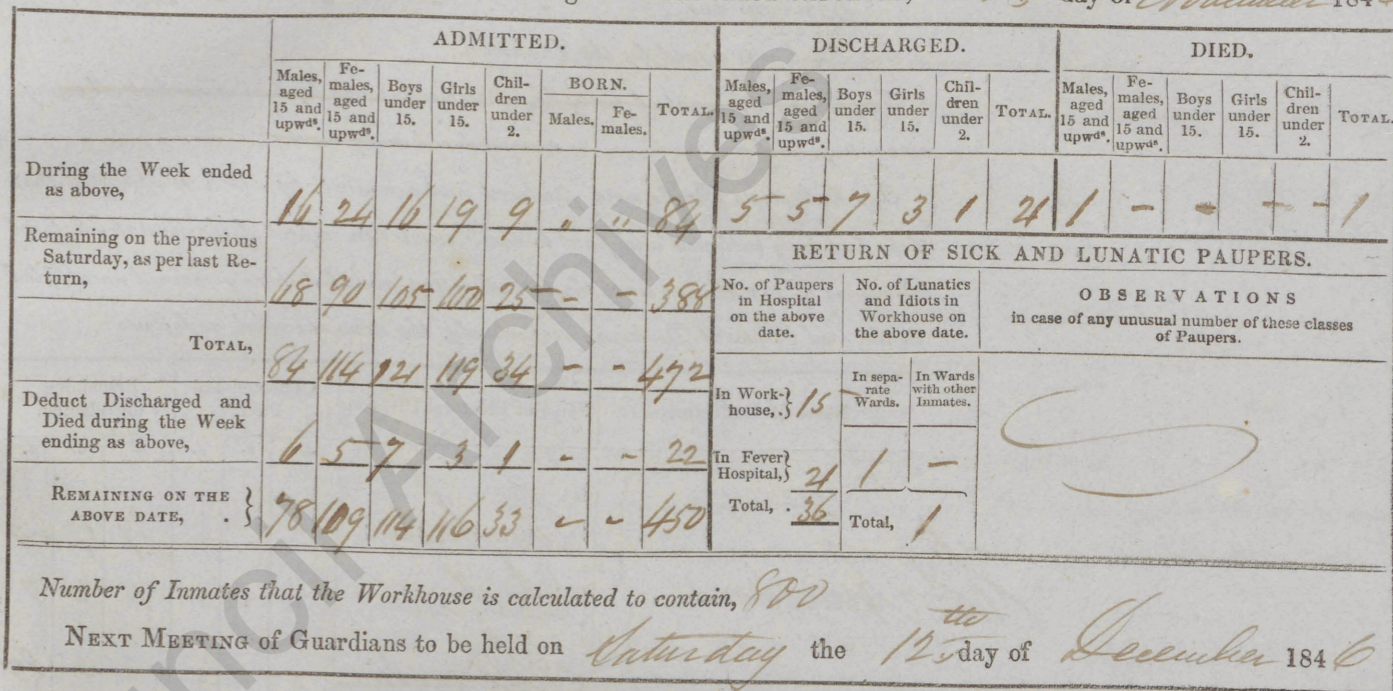 day of November 184
ADMITTED. DISCHARGED. DIED.
Males, aged 15 and upwds. Females, aged 15 and upwds. Boys under 15. Girls under 15. Children under 2. BORN. Males. Females. TOTAL. Males, aged 15 and upwds. Females, aged 15 and upwds. Boys under 15. Girls under 15. Children under 2. TOTAL. Males, aged 15 and upwds. Females, aged 15 and upwds. Boys under 15. Girls under 15. Children under 2. TOTAL.
During the Week ended
as above, 16 24 16 19 9 „ „ 84 5 5 7 3 1 21 1 - - - - 1
Remaining on the previous
Saturday, as per last Re-
turn, 68 90 105 100 25 - - 388
TOTAL, 84 114 121 119 34 - - 472
Deduct Discharged and
Died during the Week
ending as above, 6 5 7 3 1 - - 22
REMAINING ON THE
ABOVE DATE, . 78 109 114 116 33 - - 450
RETURN OF SICK AND LUNATIC PAUPERS.
No. of Paupers
in Hospital
on the above
date.
No. of Lunatics
and Idiots in
Workhouse on
the above date.
OBSERVATIONS
in case of any unusual number of these classes
of Paupers.
In Work-
house, . 15
In sepa-
rate
Wards.
In Wards
with other
Inmates.
In Fever
Hospital, 21 1 -
Total, . 36 Total, 1
Number of Inmates that the Workhouse is calculated to contain, 800
NEXT MEETING of Guardians to be held on Saturday the 12th day of December 1846
Archives